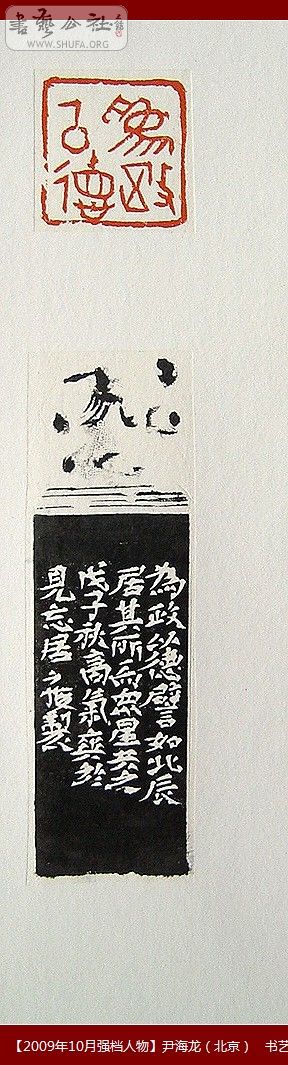 書藝公社
WWW.SHUFA.ORG
為政
以德
為政以德譬如北辰
居其所而眾星共之
戊子秋高氣爽於
見忘居製
【2009年10月强档人物】尹海龙（北京） 书艺